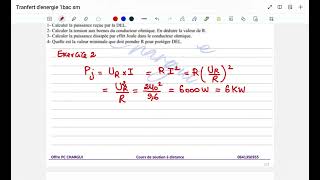 Tranfert d'energie 1bac sm
1- Calculer la puissance reçue par la DEL.
2- Calculer la tension aux bornes du conducteur ohmique. En déduire la valeur de R.
3- Calculer la puissance dissipée par effet Joule dans le conducteur ohmique.
4- Quelle est la valeur minimale que doit prendre R pour protéger DEL.
Exercice 2
Pj = UR × I = R I² = R (UR/R)²
= UR²/R = 240²/9,6 = 6000 W = 6 KW
Offre PC CHARGUI Cours de soutien à distance 0641350355